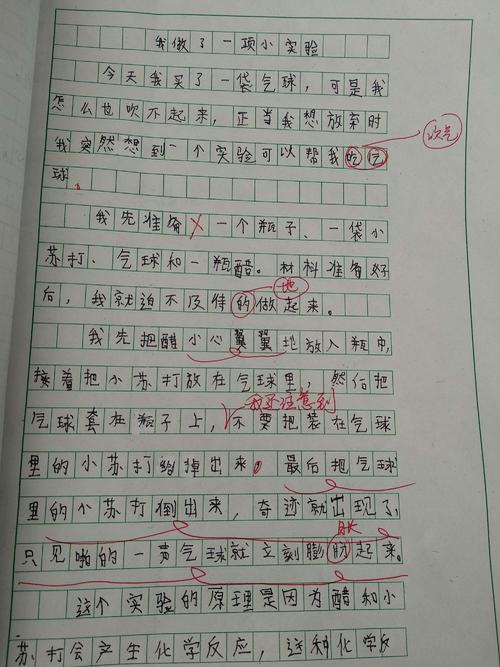 我做了一项小实验
今天我买了一袋气球，可是我
怎么也吹不起来，正当我想放弃时
吹气
我突然想到一个实验可以帮我吃气
球。
我先准备一个瓶子、一袋小
苏打、气球和一瓶醋。材料准备好
地
后，我就迫不及待的做起来。
我先把醋小心翼翼地放入瓶中，
接着把小苏打放在气球里，然后把
我还注意到
气球套在瓶子上，不要把装在气球
里的小苏打给掉出来。最后把气球
里的小苏打倒出来，奇迹就出现了，
胀
只见啪的一声气球就立刻膨肮起来。
这个实验的原理是因为醋和小
苏打会产生化学反应，这种化学反